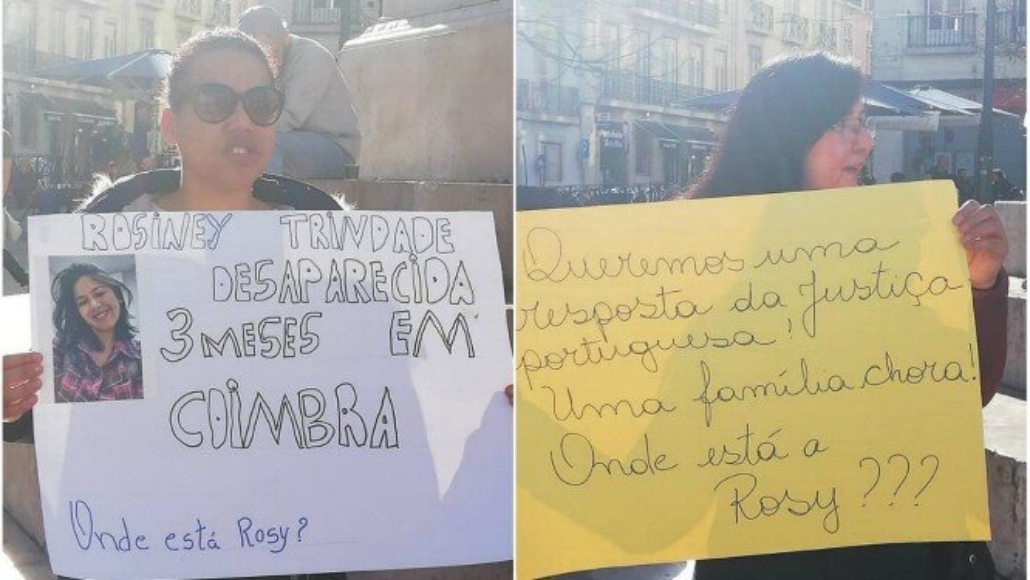 ROSINEY TRINDADE
DESAPARECIDA
3 MESES EM
COIMBRA
Onde está Rosy?
Queremos uma
resposta da Justiça
portuguesa!
Uma família chora!
Onde está a
Rosy???